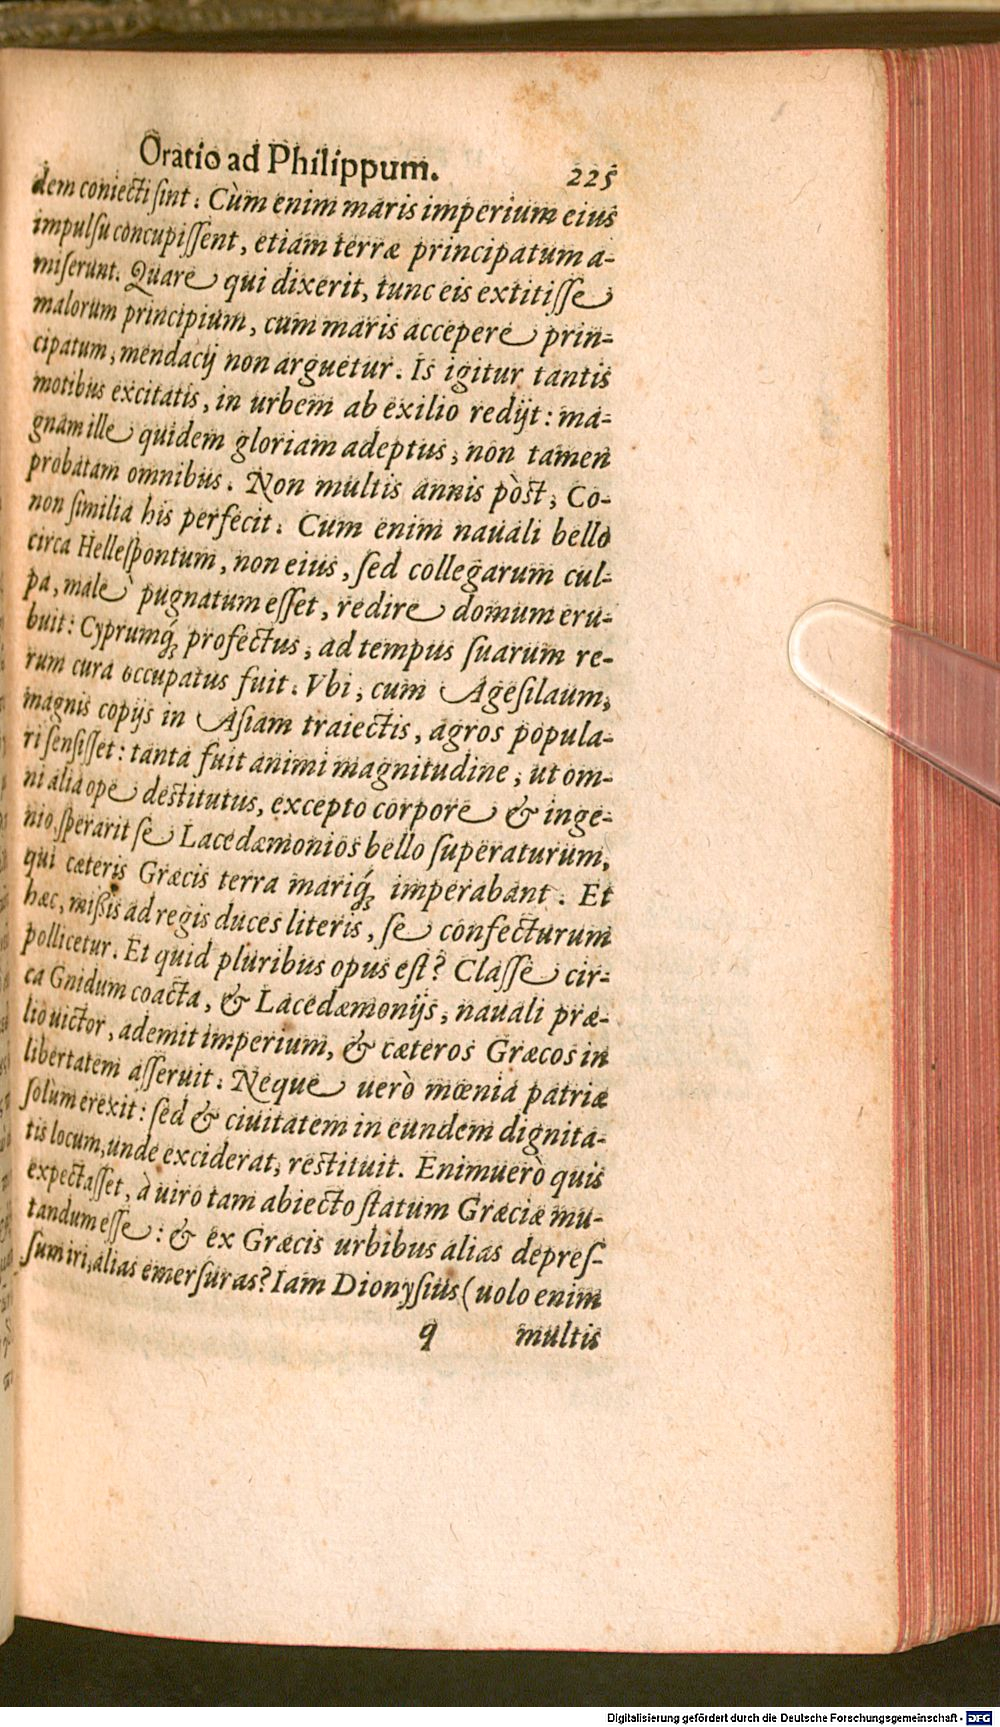 Oratio ad Philippum. 225
dem coniecti sint. Cùm enim maris imperium eius
impulsu concupissent, etiam terræ principatum a-
miserunt. Quare qui dixerit, tunc eis extitisse
malorum principium, cum maris accepere prin-
cipatum, mendacij non arguetur. Is igitur tantis
motibus excitatis, in urbem ab exilio redijt: ma-
gnam ille quidem gloriam adeptus, non tamen
probatam omnibus. Non multis annis pòst, Co-
non similia his perfecit. Cum enim nauali bello
circa Hellespontum, non eius, sed collegarum cul-
pa, malè pugnatum esset, redire domum eru-
buit: Cyprumq́; profectus, ad tempus suarum re-
rum cura occupatus fuit. Vbi, cum Agesilaum,
magnis copijs in Asiam traiectis, agros popula-
ri sensisset: tanta fuit animi magnitudine, ut om-
ni alia ope destitutus, excepto corpore & inge-
nio, sperarit se Lacedæmonios bello superaturum,
qui cæteris Græcis terra mariq́; imperabant. Et
hæc, mißis ad regis duces literis, se confecturum
pollicetur. Et quid pluribus opus est? Classe cir-
ca Gnidum coacta, & Lacedæmonijs, nauali præ-
lio uictor, ademit imperium, & cæteros Græcos in
libertatem asseruit. Neque uerò mœnia patriæ
solum erexit: sed & ciuitatem in eundem dignita-
tis locum, unde exciderat, restituit. Enimuerò quis
expectasset, à uiro tam abiecto statum Græciæ mu-
tandum esse: & ex Græcis urbibus alias depres-
sum iri, alias emersuras? Iam Dionysius (uolo enim
q multis
Digitalisierung gefördert durch die Deutsche Forschungsgemeinschaft - DFG